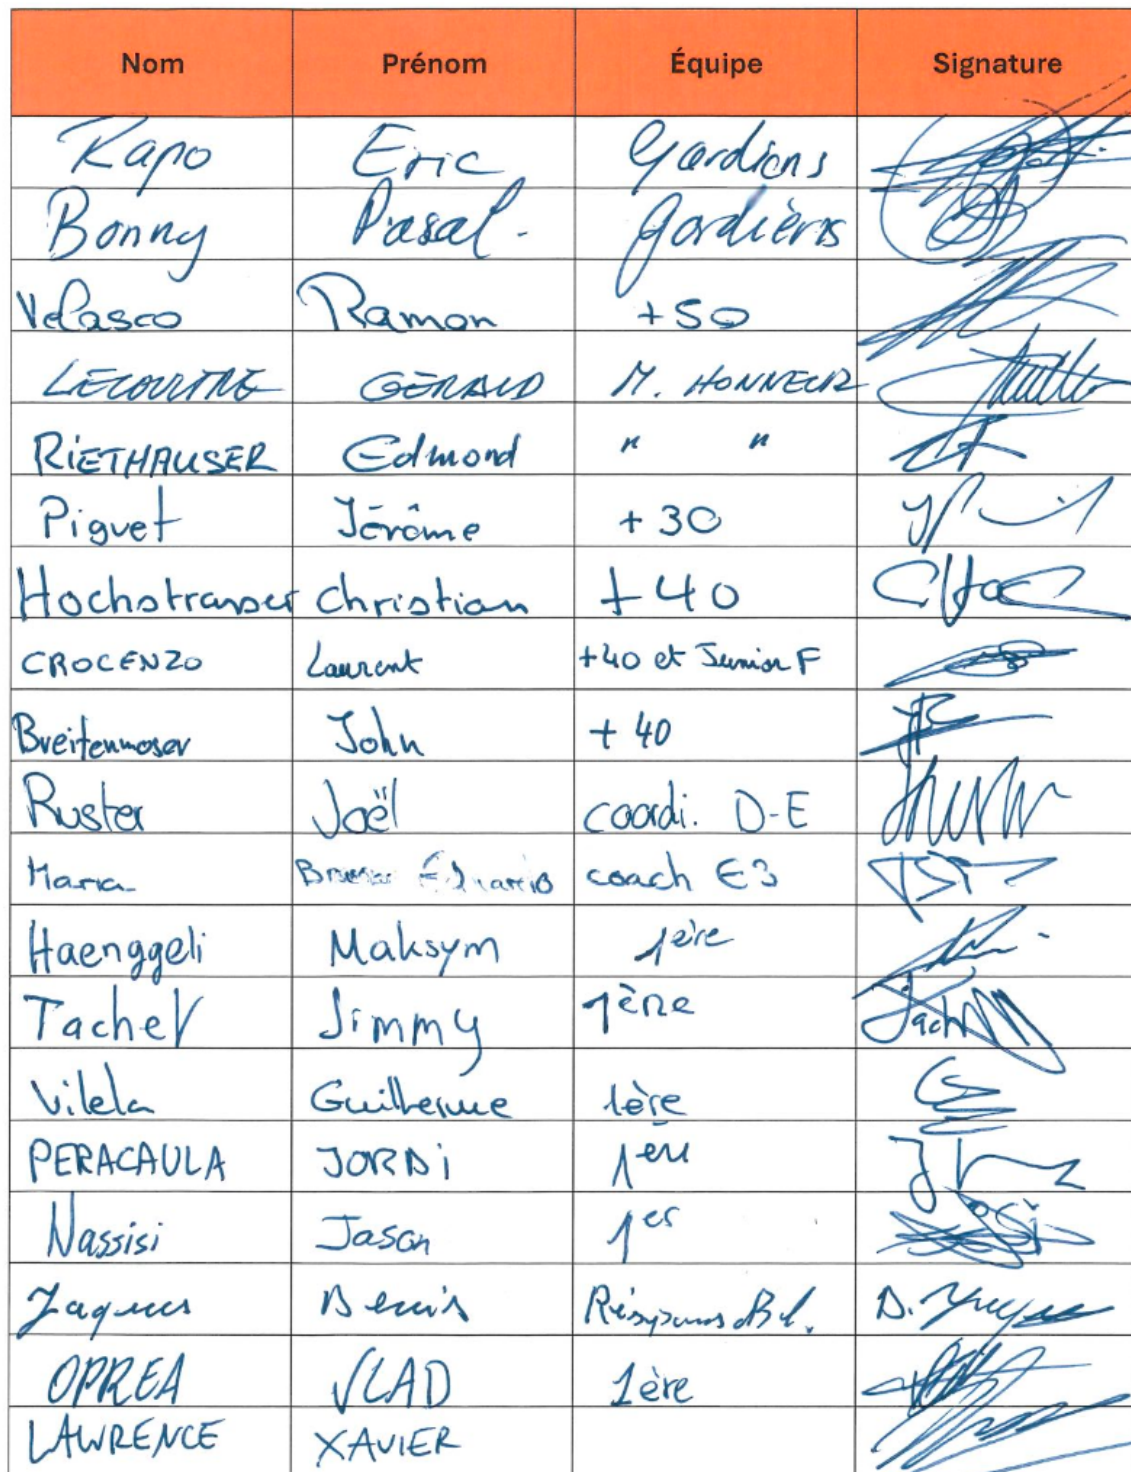 Nom Prénom Équipe Signature
Kapo Eric Gardiens
Bonny Pasal. Gardièns
Velasco Ramon +50
LECOULTRE GÉRALD M. HONNEUR
RIETHAUSER Edmond " "
Piguet Jérôme +30
Hochstrasser christian +40
CROCENZO Laurent +40 et Junior F
Breitenmoser John +40
Ruster Joël coordi. D-E
Maria coach E3
Haenggeli Maksym 1ère
Tachet Jimmy 1ère
Vilela Guilherme 1ère
PERACAULA JORDi 1ère
Nassisi Jason 1er
Jaques Denis D.
OPREA VLAD 1ère
LAWRENCE XAVIER